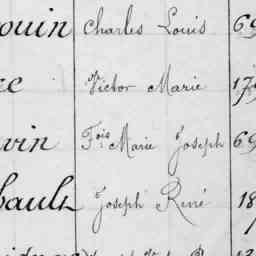 ouin Charles Louis 69
Victor Marie 179
vin Fois Marie Joseph 69
bault Joseph René 18